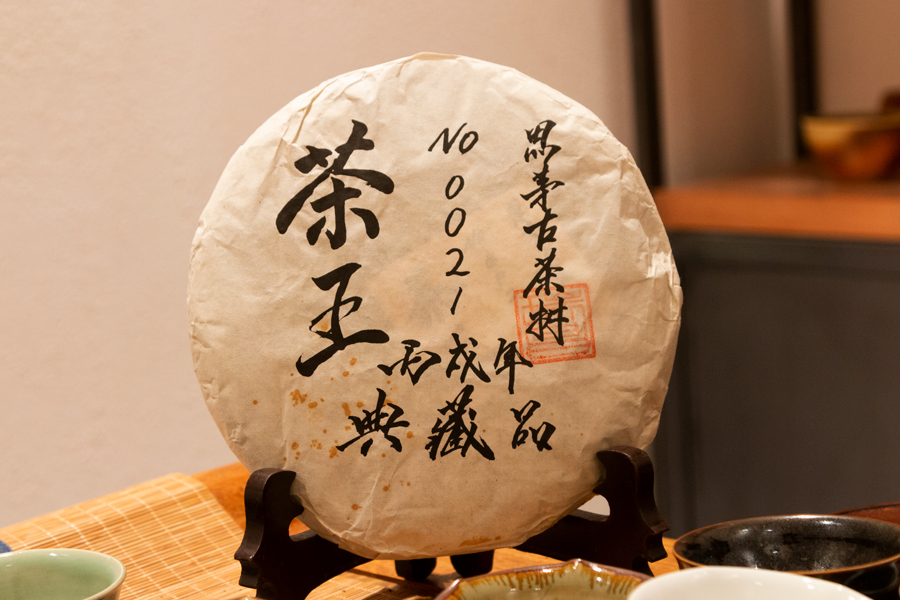 思茅古茶
No 0021
茶王
丙戌年
典藏品